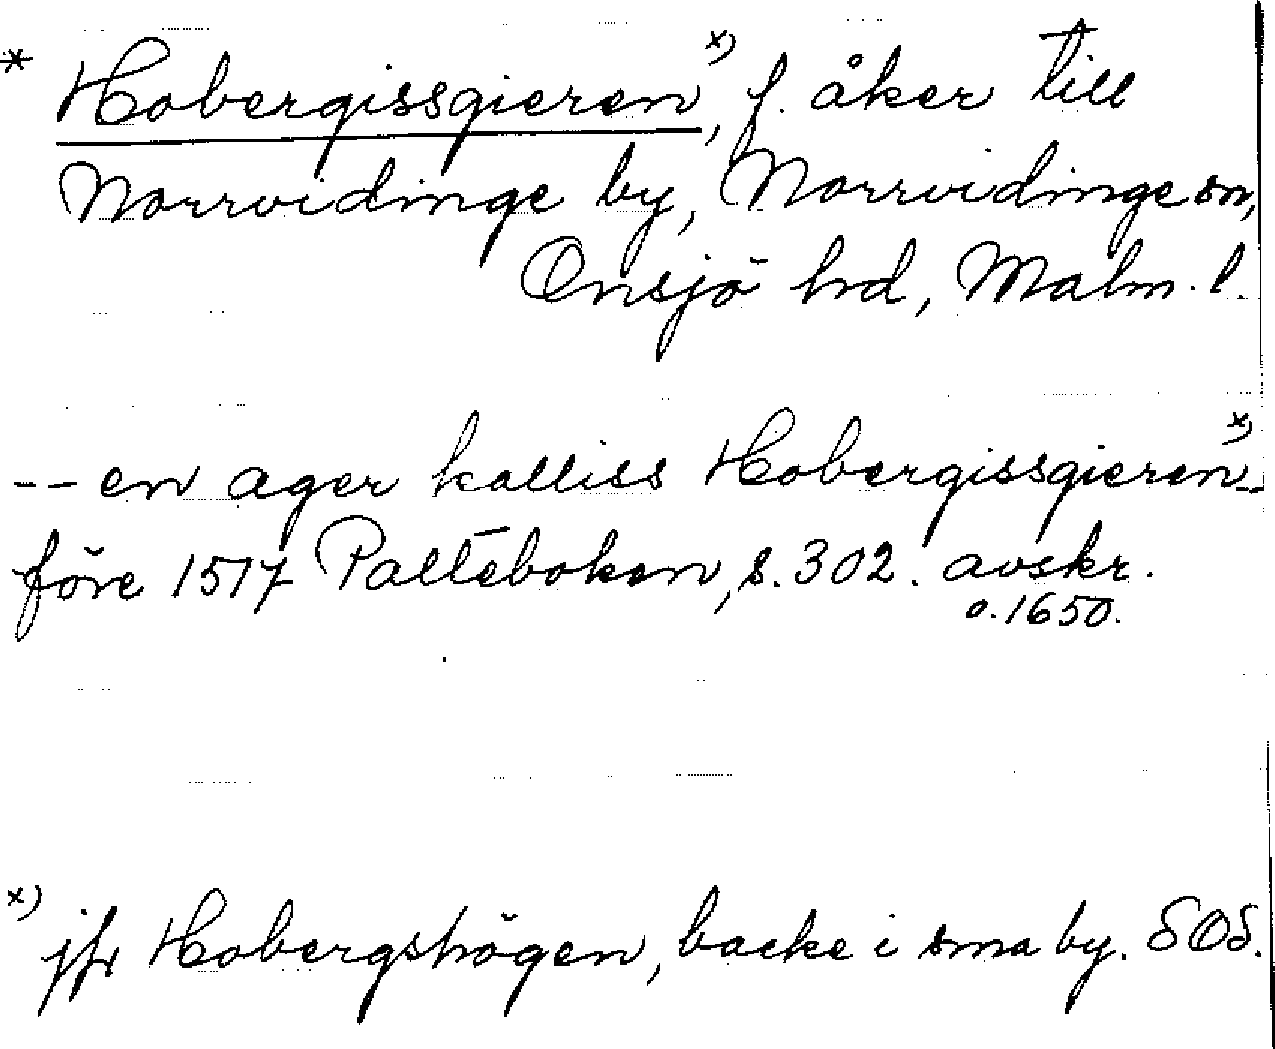 * Hobergissgieren x), f. åker till
Norrvidinge by, Norrvidinge sn,
Onsjö hd, Malm. l.
-- en ager kalliss Hobergissgieren x) --
före 1517 Palteboken, s. 302. avskr.
o. 1650.
x) jfr Hobergshögen, backe i sma by. SOS.